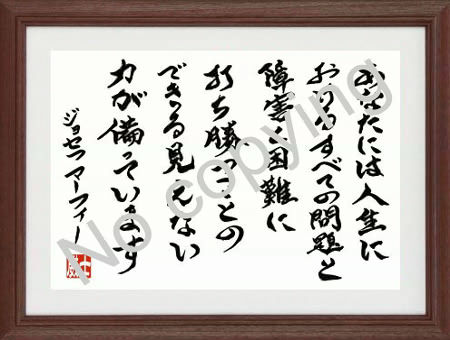 あなたには人生に
おけるすべての問題と
障害と困難に
打ち勝つことの
できる見えない
力が備っています
ジョセフ マーフィー
No copying